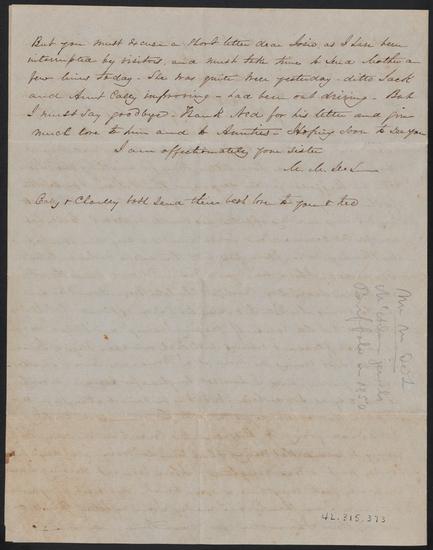 But you must excuse a short letter dear Josie, as I have been
interrupted by visitors, and must take time to send Mother a
few lines today - She was quite well yesterday - ditto Jack
and Aunt Caley improving - had been out driving. But
I must say goodbye - Thank Ned for his letter and give
much love to him and to Aunties - Hoping soon to see you
I am affectionately your sister
M. M. DeL
Caley & Charley both send their best love to you & Ned
M. M. DeL
Buffalo 1850
42.315.373